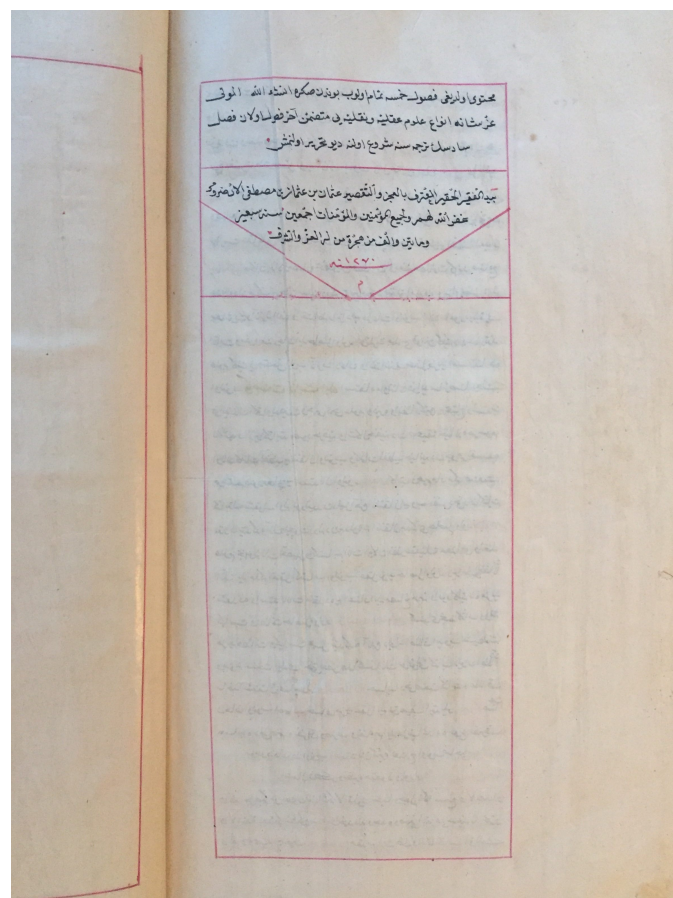 محتوى اولديغى فصول خمسه تمام اولوب بوندن صكره انشاء الله الموفق
عز شانه انواع علوم عقليه ونقليه يى متضمن آخر فصول اولان فصل
سادسك ترجمه سنه شروع اولنه ديو تحرير اولنمش
بيد الفقير الحقير المعترف بالعجز والتقصير عثمان بن عثمان بن مصطفى
غفر الله لهم ولجميع المؤمنين والمؤمنات اجمعين سنه سبعين
ومايتين والف من هجرة من له العز والشرف
سنه ١٢٧٠
م